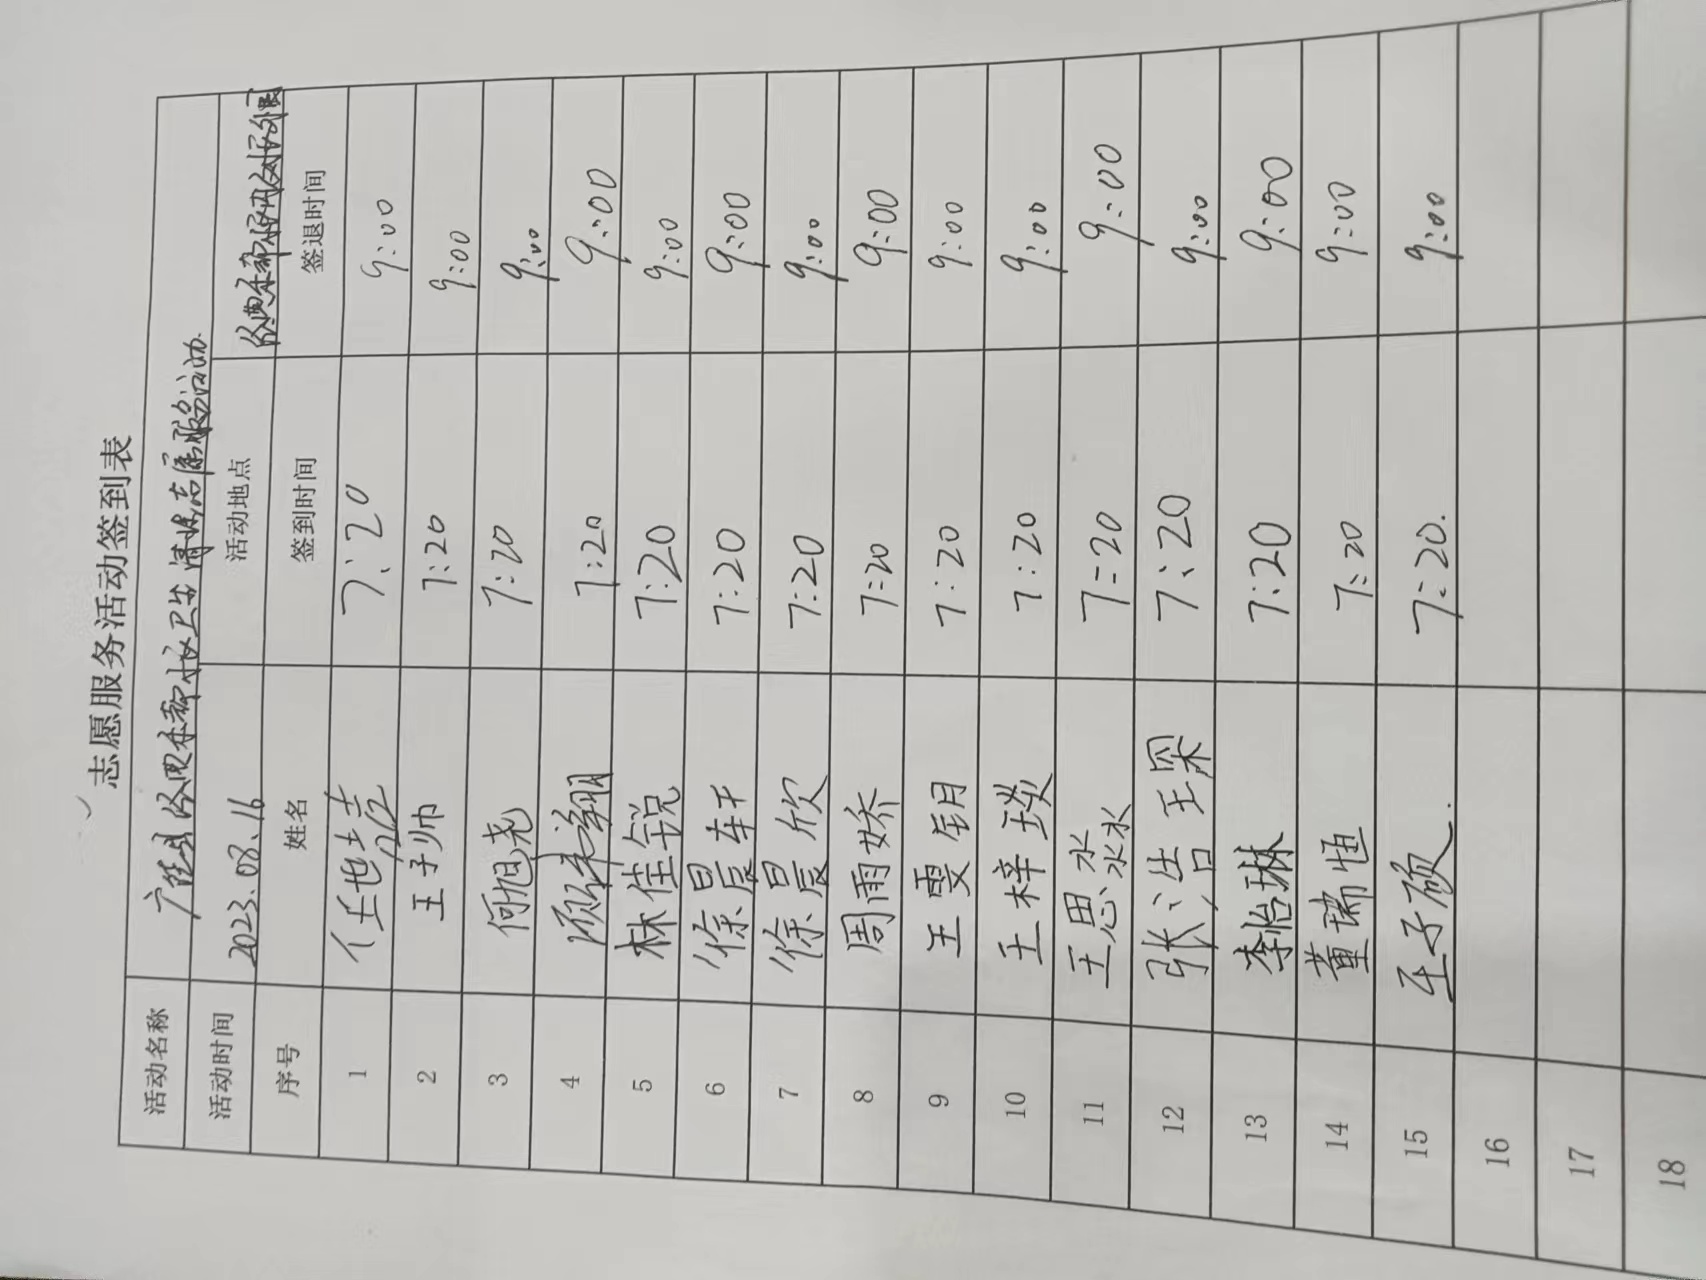 志愿服务活动签到表
活动名称 广饶县经典东郡小区卫生清洁志愿服务活动.
活动时间 2023.08.16 活动地点 经典东郡小区内及小区外围
序号 姓名 签到时间 签退时间
1 任地喆 7:20 9:00
2 王子帅 7:20 9:00
3 何旭尧 7:20 9:00
4 翔 7:20 9:00
5 林佳锐 7:20 9:00
6 徐晨轩 7:20 9:00
7 徐晨欣 7:20 9:00
8 周雨娇 7:20 9:00
9 王雯钥 7:20 9:00
10 王梓琰 7:20 9:00
11 王思淼 7:20 9:00
12 张洁琛 7:20 9:00
13 李怡琳 7:20 9:00
14 董瑞恒 7:20 9:00
15 王子硕. 7:20. 9:00
16
17
18